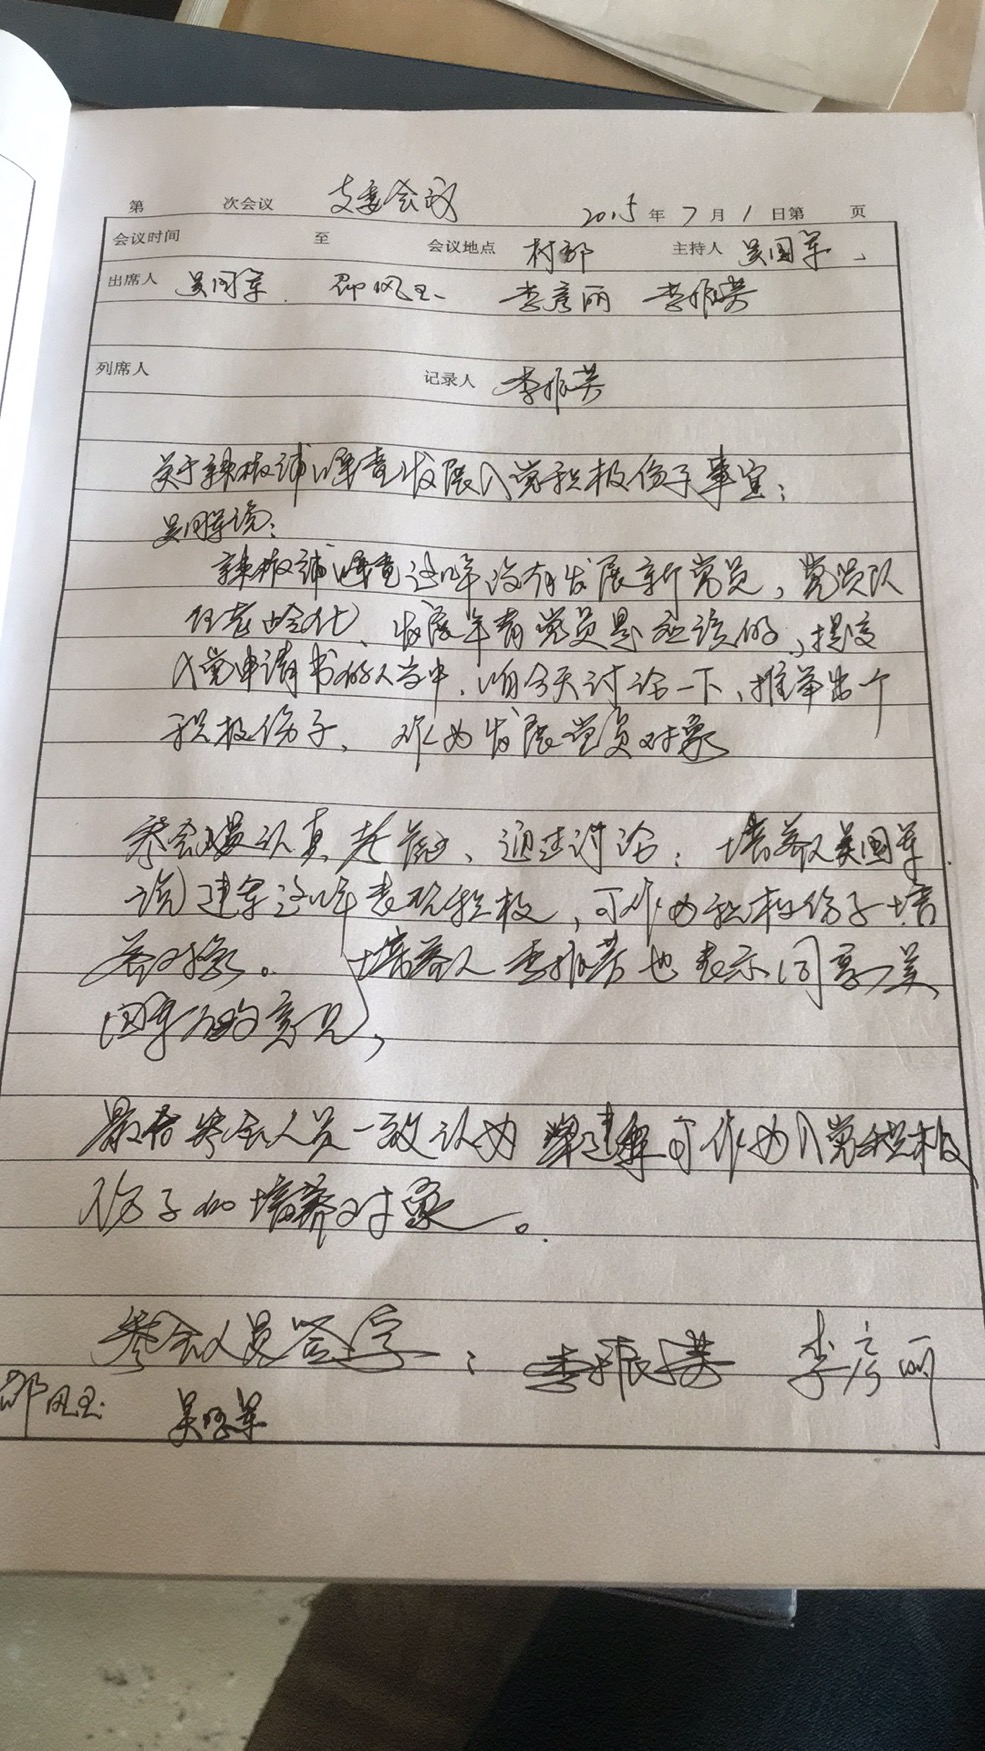 第 次会议 支委会议 2015年7月1日第 页
会议时间 至 会议地点 村部 主持人 吴国军、
出席人 吴国军 邵凤玉 李彦丽 李振荣
列席人 记录人 李振荣
关于辣椒铺 发展入党积极份子事宜；
吴国军说：
辣椒铺 这几年没有发展新党员，党员队
伍老龄化、发展年青党员是应该的，提交
入党申请书的人当中，咱今天讨论一下、推举出个
积极份子、作为发展党员对象
参会 认真 、通过讨论：培养人吴国军
说 建军这几年表现积极，可作为积极份子培
养对象。培养人李振荣也表示同意吴
国军 的意见，
最后参会人员一致认为 建军可作为入党积极
份子的培养对象。
参会人员签字： 李振荣 李彦丽
邵凤玉 吴国军